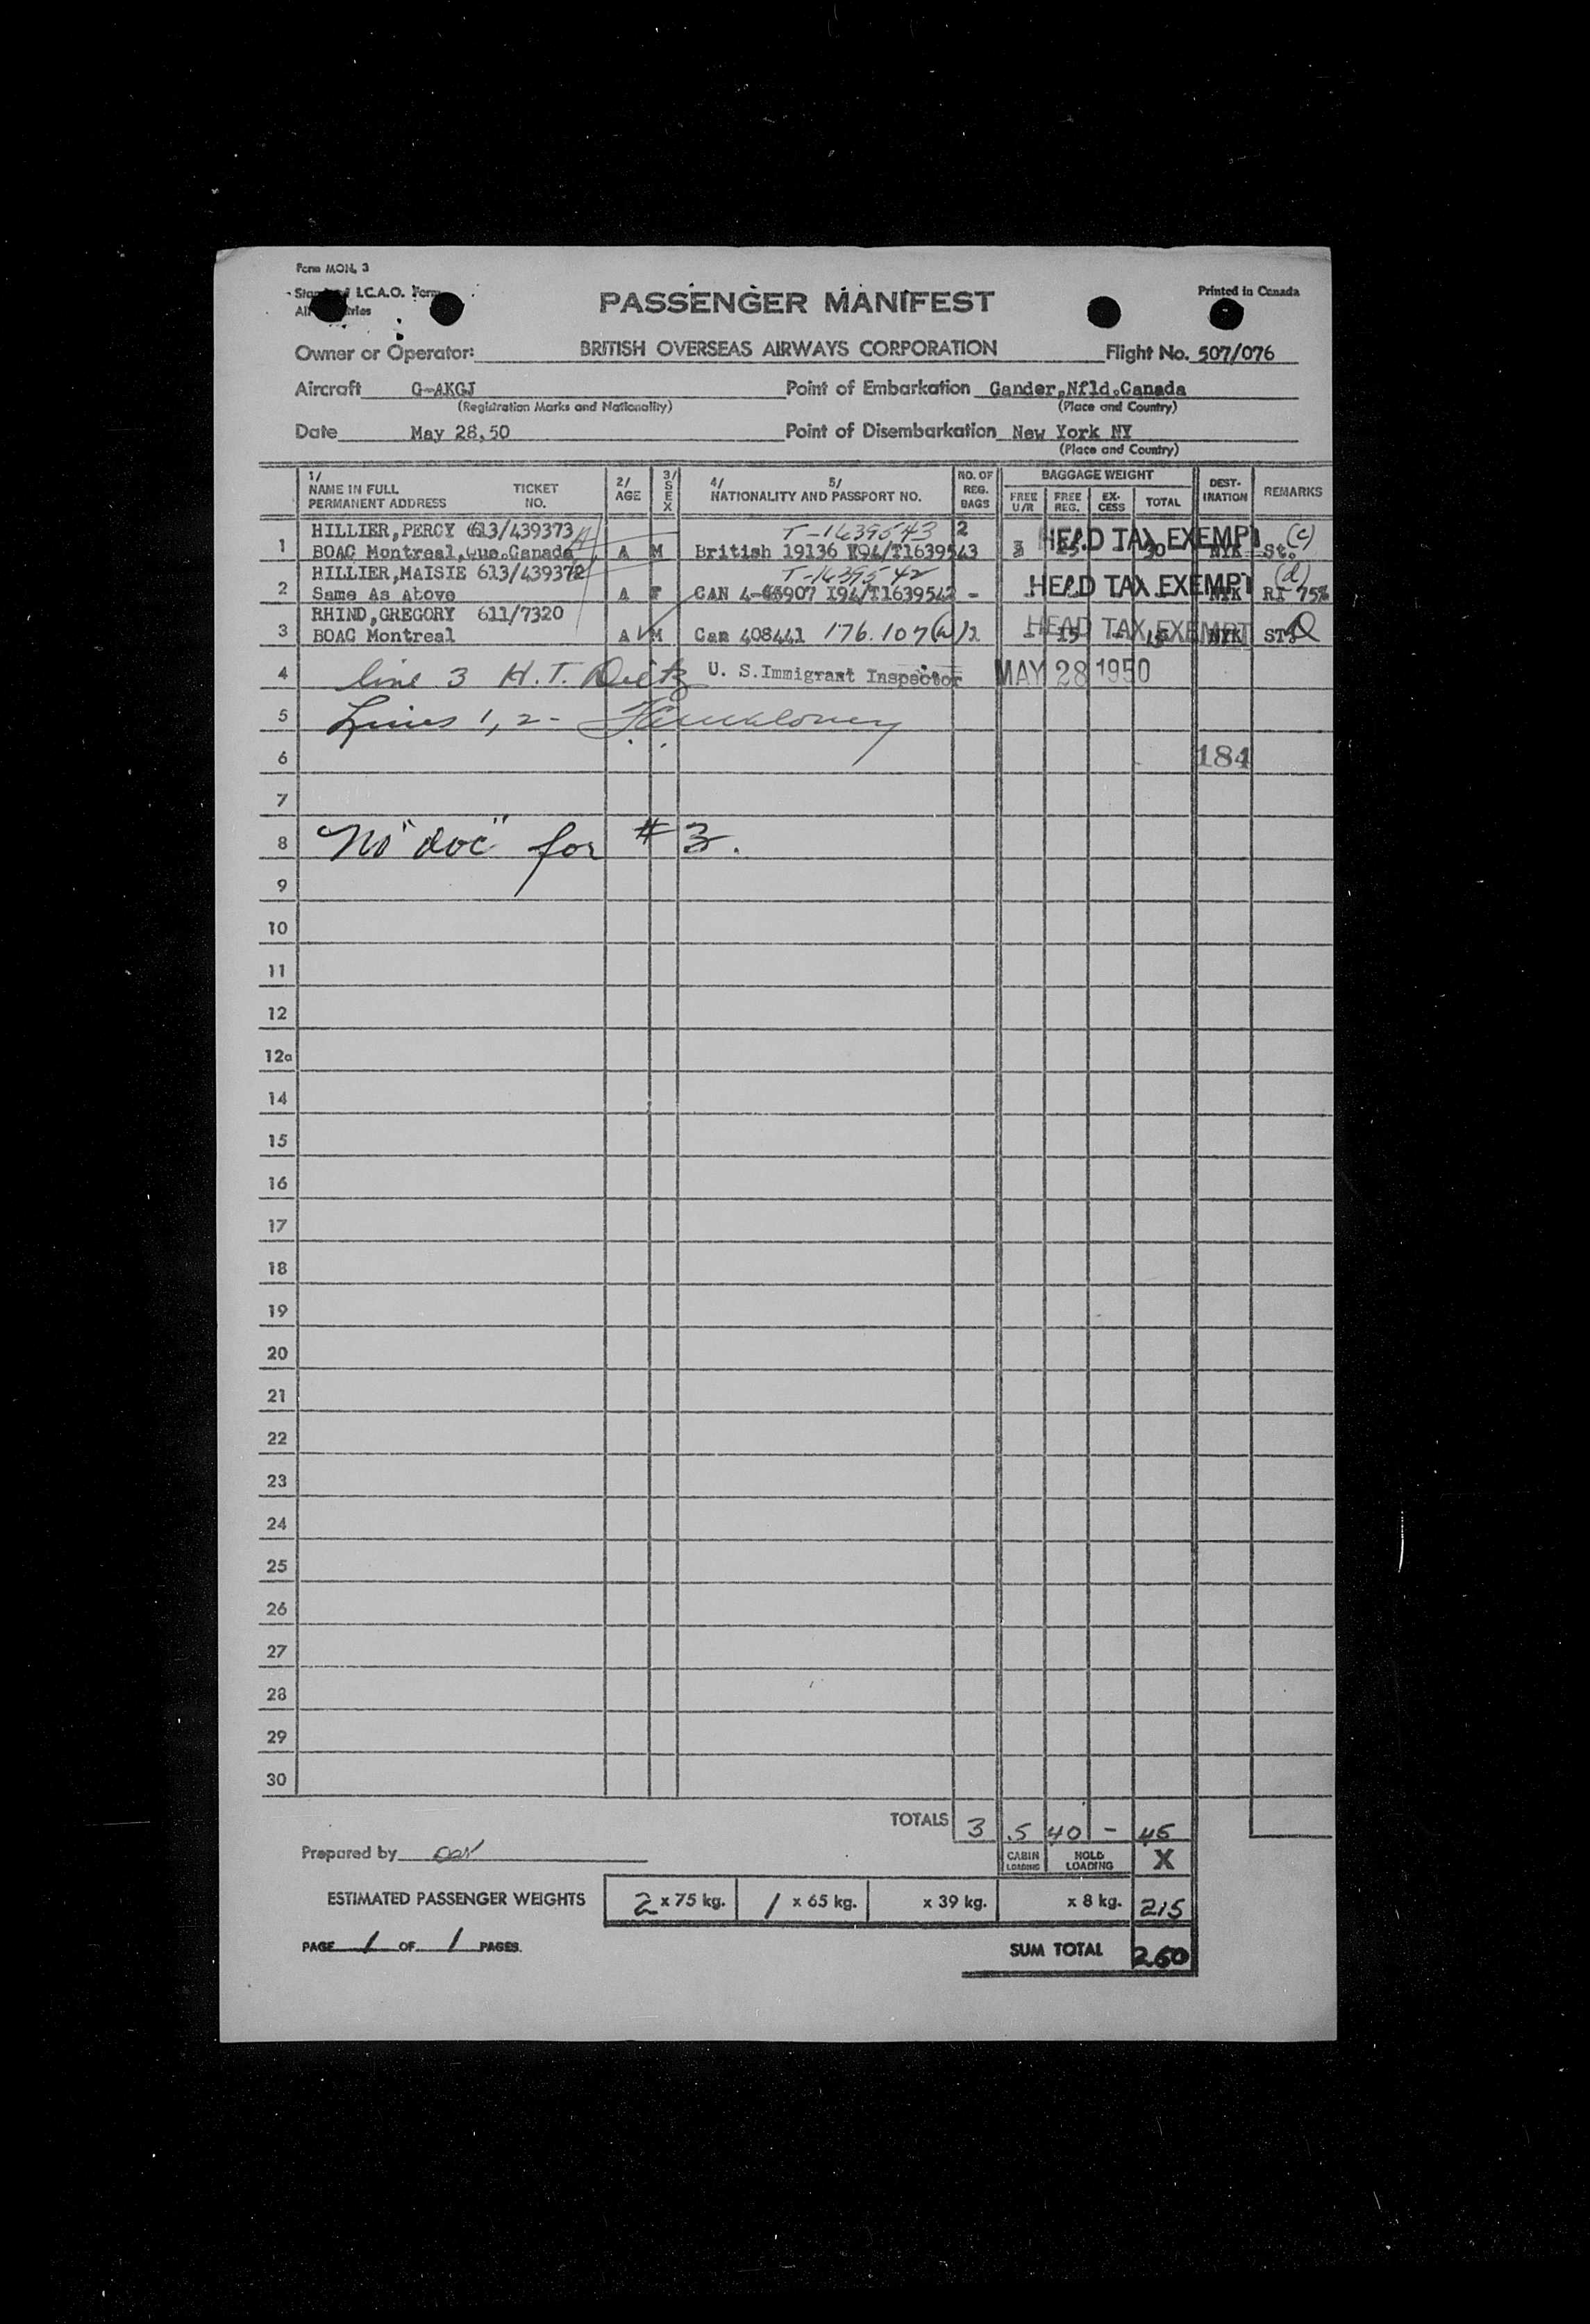 Form MON. 3
I.C.A.O. Form
Printed in Canada
PASSENGER MANIFEST
Owner or Operator: BRITISH OVERSEAS AIRWAYS CORPORATION Flight No. 507/076
Aircraft G-AKGJ Point of Embarkation Gander,Nfld.Canada
(Registration Marks and Nationality) (Place and Country)
Date May 28,50 Point of Disembarkation New York NY
(Place and Country)
1/ NAME IN FULL PERMANENT ADDRESS TICKET NO. 2/ AGE 3/ SEX 4/ 5/ NATIONALITY AND PASSPORT NO. NO. OF REG. BAGS BAGGAGE WEIGHT FREE U/R FREE REG. EX- CESS TOTAL DEST- INATION REMARKS
HILLIER,PERCY 613/439373 T-1639543 2
1 BOAC Montreal,Que.Canada A M British 19136 I94/T1639543 HEAD TAX EXEMPT NYK St. (c)
HILLIER,MAISIE 613/439372 T-1639542
2 Same As Above A F CAN 4-63907 I94/T1639542 - HEAD TAX EXEMPT NYK RT 75% (d)
RHIND,GREGORY 611/7320
3 BOAC Montreal A M Can 408441 176.107(a) 2 - 15 - 15 HEAD TAX EXEMPT NYK ST.
4 line 3 H.T. Dietz U. S. Immigrant Inspector MAY 28 1950
5 Lines 1, 2 -
6 184
7
8 No "doc" for #3.
9
10
11
12
12a
14
15
16
17
18
19
20
21
22
23
24
25
26
27
28
29
30
TOTALS 3 5 40 - 45
Prepared by
CABIN LOADING HOLD LOADING X
ESTIMATED PASSENGER WEIGHTS 2 x 75 kg. 1 x 65 kg. x 39 kg. x 8 kg. 215
PAGE 1 OF 1 PAGES. SUM TOTAL 260